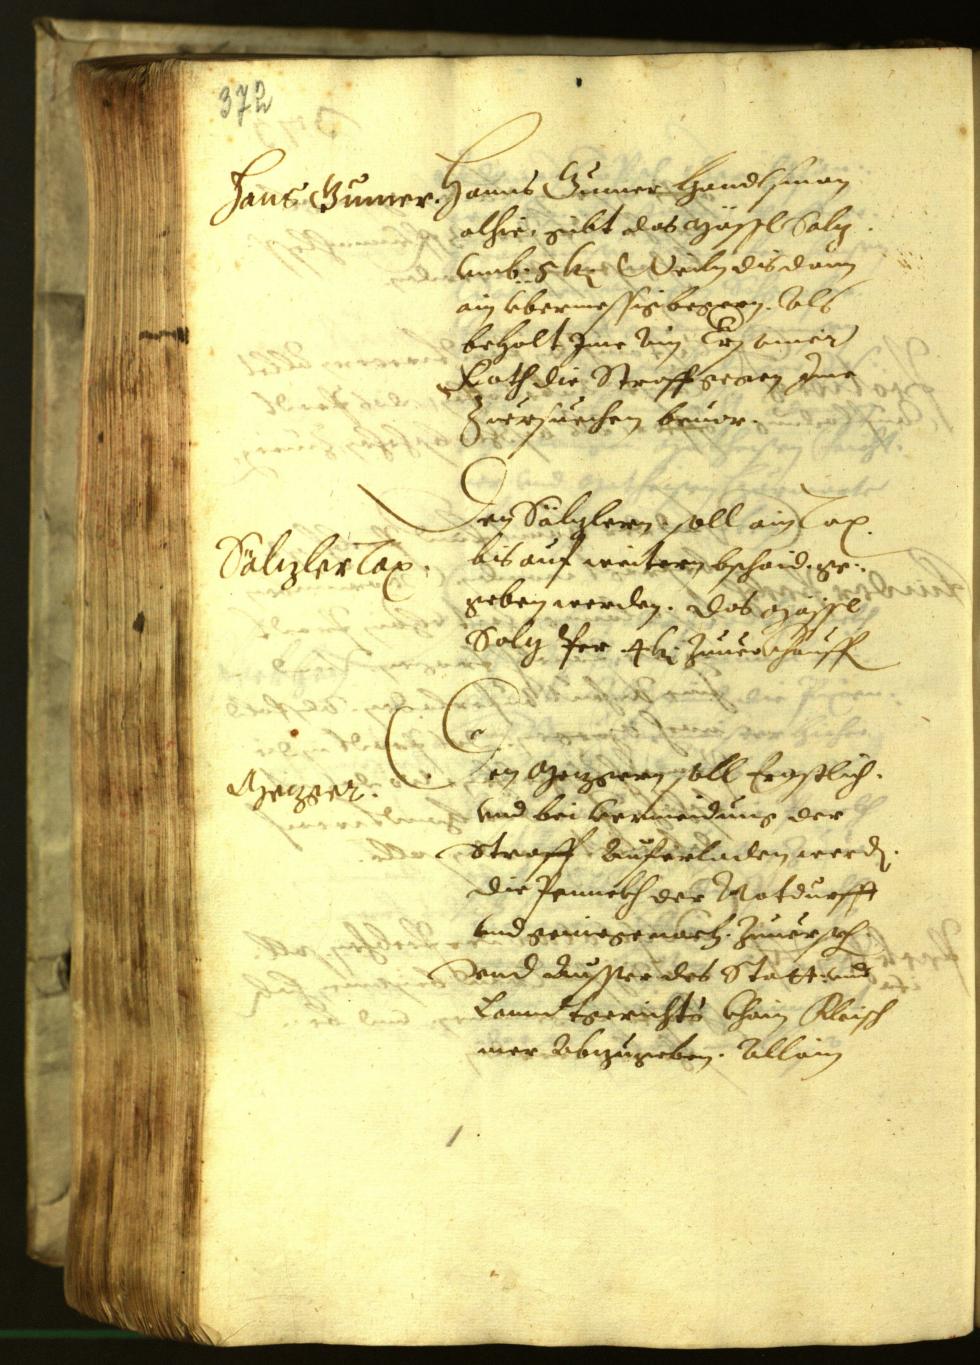 372
Hans Gumer.
Hanns Gumer Handlsman
alhie, gibt das Mässl Salz
umb 5 kr. Weiln dis dann
ain ubermessig begern. Als
beholt Ime Ain Ers. amer
Rath die Straff gegen Ime
Zuersuechen bevor.
Sälzler Tax.
Den Sälzlern soll ain Tax
bis auf weitern bschaid ge:
geben werden. das Mässl
Salz per 4 kr. Zuuerkhauffn
Mezger.
Den Mezgern soll Ernstlich.
und bei vermeidung der
Straff Auferladen werdn.
die Pennkh der Notdurfft
und
und Ausser des Statt und
Lanndtgerichts khain Fleisch
mer Abzugeben. Allain